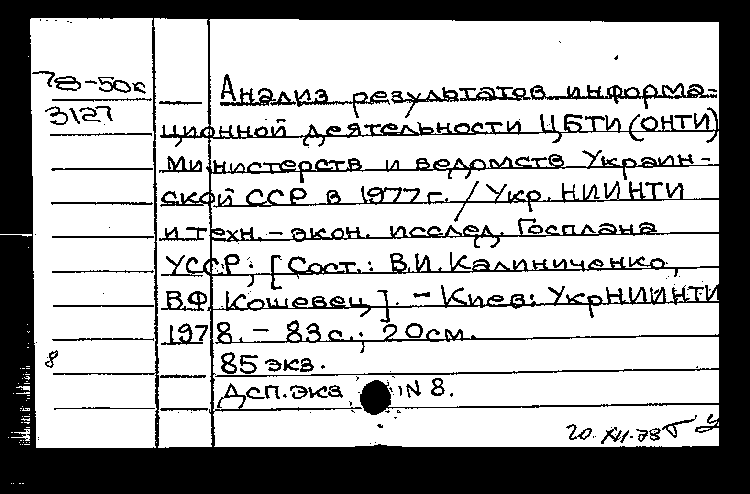 78-50с
3127
Анализ результатов информа-
ционной деятельности ЦБТИ (ОНТИ)
министерств и ведомств Украин-
ской ССР в 1977 г. / Укр. НИИНТИ
и техн.-экон. исслед. Госплана
УССР; [Сост.: В.И. Калиниченко,
В.Ф. Кошевец]. - Киев: УкрНИИНТИ
1978. - 83 с.; 20 см.
85 экз.
8
Дсп. экз. N 8.
20.XII.78